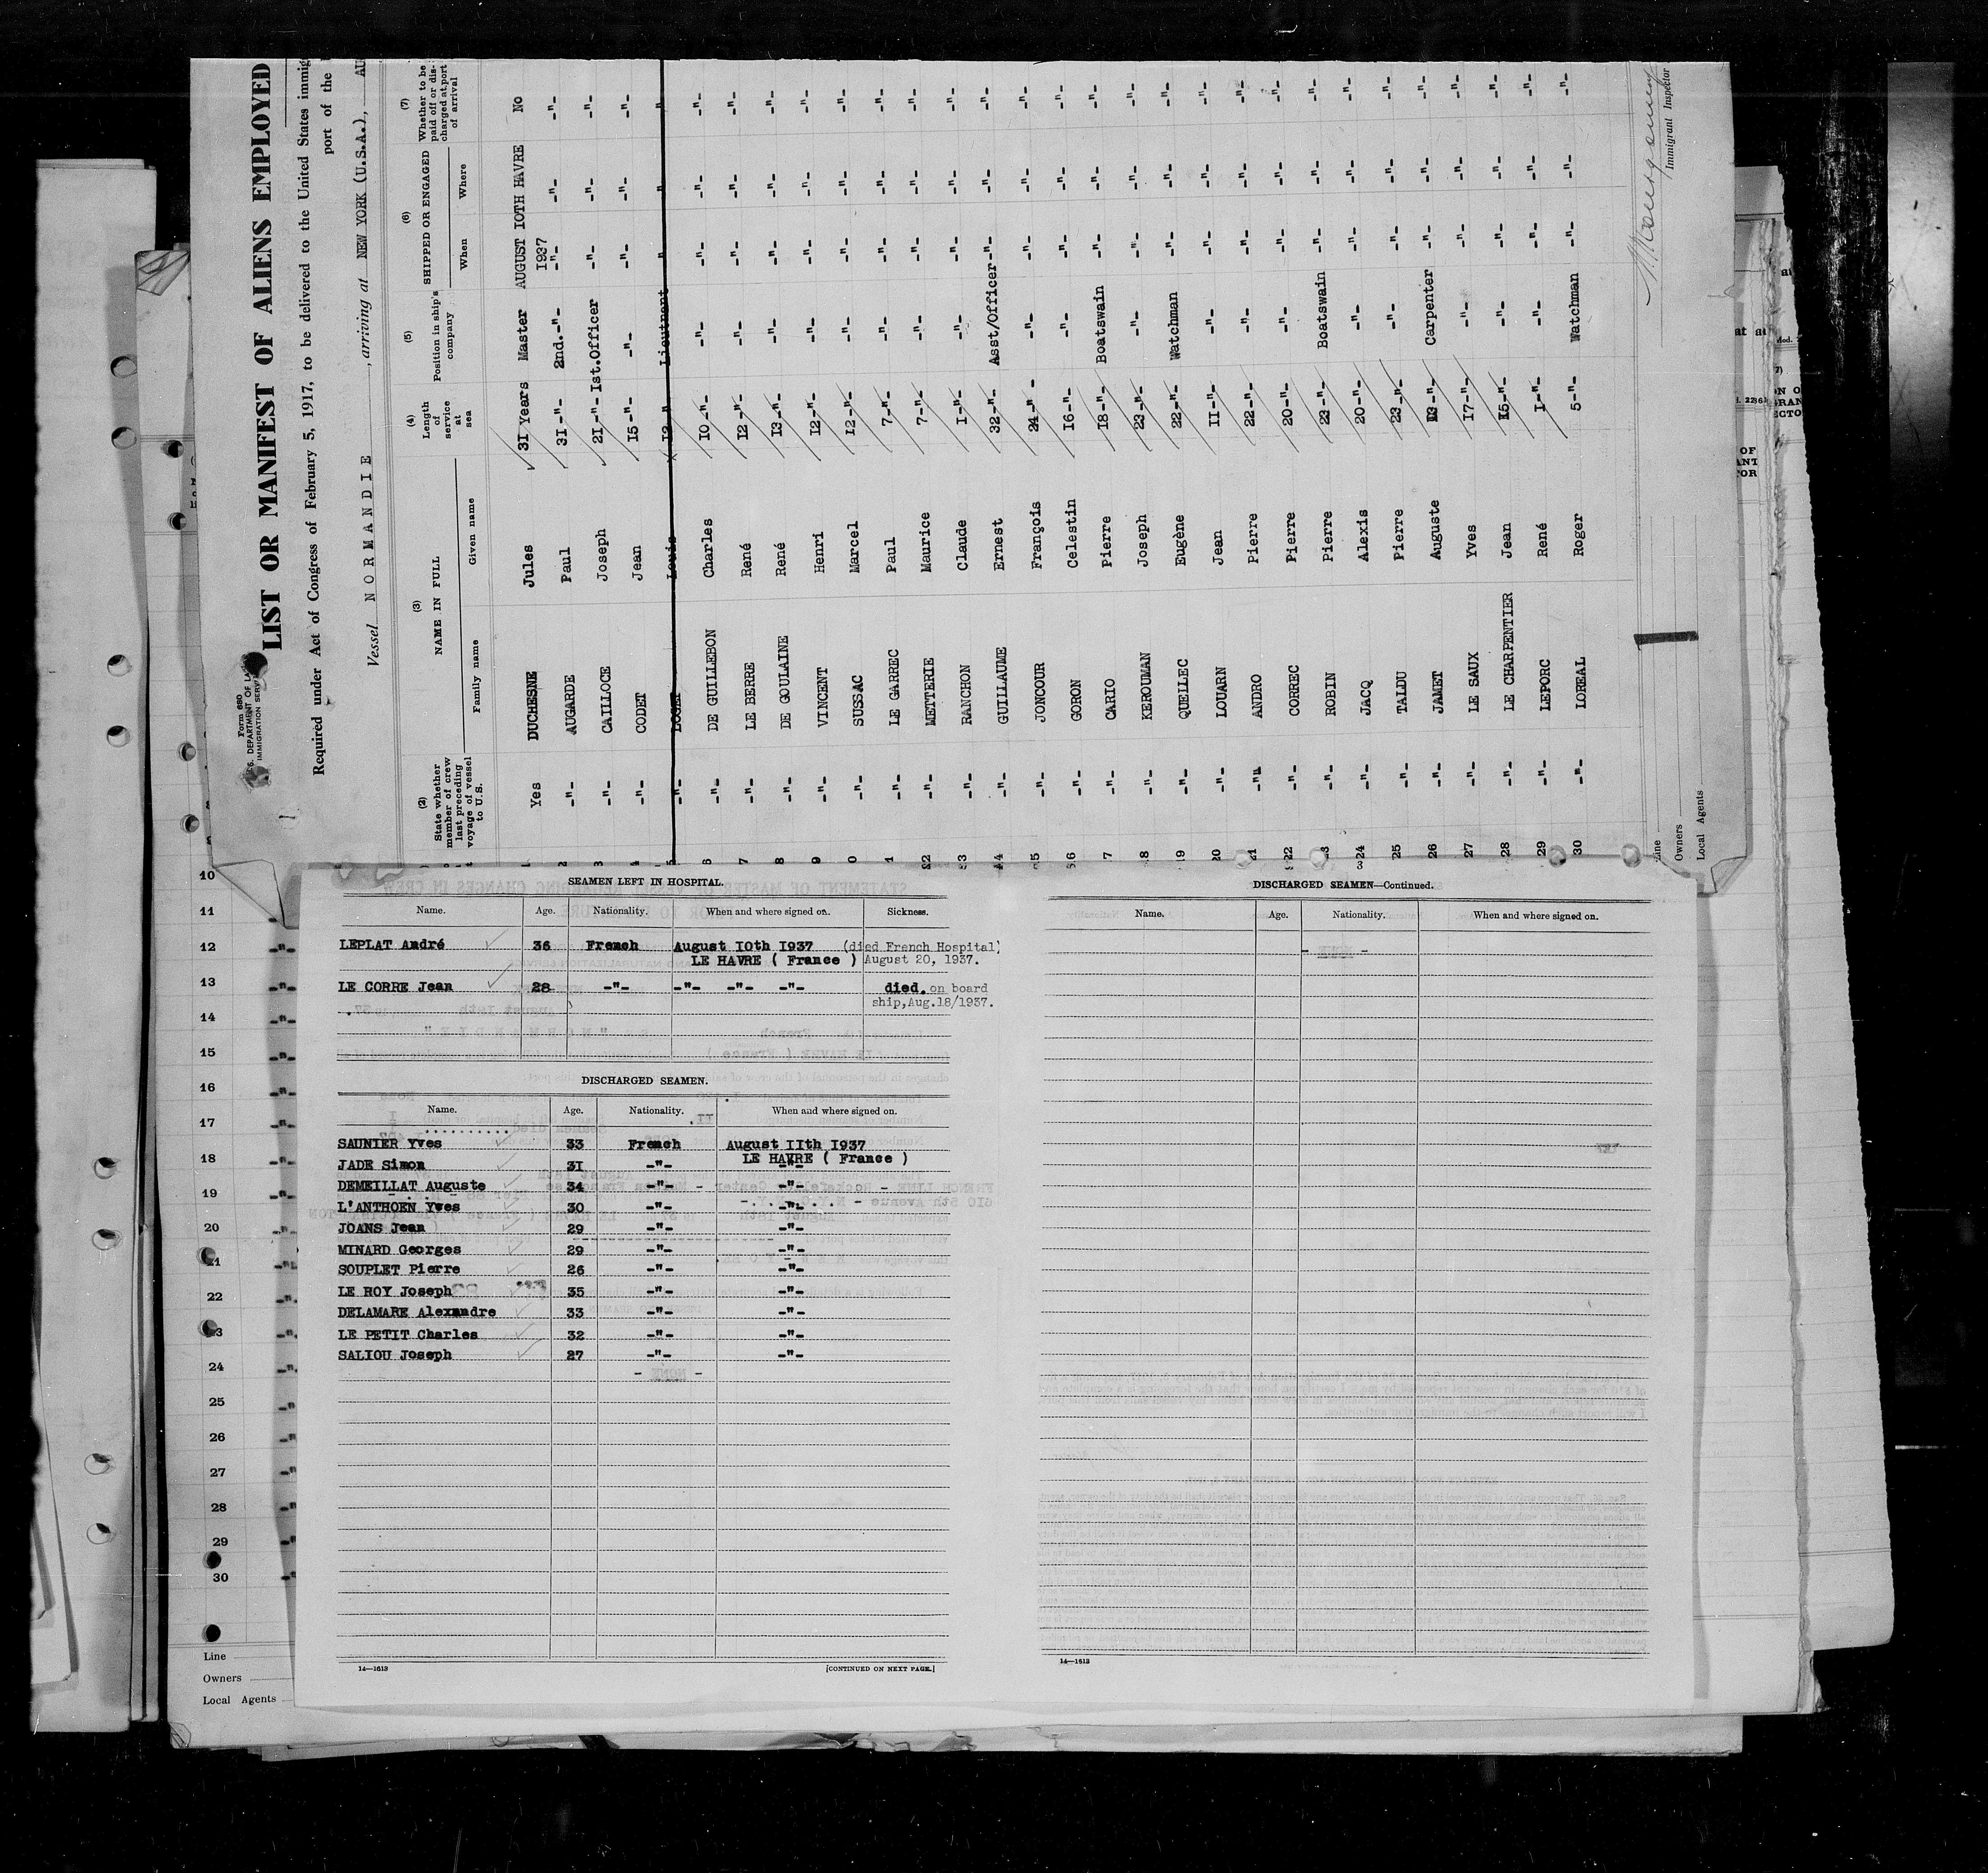 Form 680
U.S. DEPARTMENT OF LA
IMMIGRATION SERV
LIST OR MANIFEST OF ALIENS EMPLOYED
Required under Act of Congress of February 5, 1917, to be delivered to the United States immig
port of the
Vessel NORMANDIE , arriving at NEW YORK (U.S.A.), AU
(2) State whether member of crew last preceding voyage of vessel to U.S. (3) NAME IN FULL Family name Given name (4) Length of service at sea (5) Position in ship's company (6) SHIPPED OR ENGAGED When Where (7) Whether to be paid off or discharged at port of arrival
1 Yes DUCHESNE Jules 31 Years Master AUGUST 10TH 1937 HAVRE No
2 -"- AUGARDE Paul 31-"- 2nd.-"- -"- -"- -"-
3 -"- CAILLOCE Joseph 21-"- 1st.Officer -"- -"- -"-
4 -"- CODET Jean 15-"- -"- -"- -"- -"-
5 -"- LOGET Louis 12-"- Lieutnant " " "
6 -"- DE GUILLEBON Charles 10-"- -"- -"- -"- -"-
7 -"- LE BERRE René 12-"- -"- -"- -"- -"-
8 -"- DE GOULAINE René 13-"- -"- -"- -"- -"-
9 -"- VINCENT Henri 12-"- -"- -"- -"- -"-
0 -"- SUSSAC Marcel 12-"- -"- -"- -"- -"-
1 -"- LE GARREC Paul 7-"- -"- -"- -"- -"-
-"- METTERIE Maurice 7-"- -"- -"- -"- -"-
-"- RANCHON Claude 1-"- -"- -"- -"- -"-
-"- GUILLAUME Ernest 32-"- Asst/Officer-"- -"- -"-
-"- JONCOUR François 24-"- -"- -"- -"- -"-
-"- GORON Celestin 16-"- -"- -"- -"- -"-
7 -"- CARIO Pierre 18-"- Boatswain -"- -"- -"-
18 -"- KEROUMAN Joseph 23-"- -"- -"- -"- -"-
19 -"- QUEILEC Eugène 22-"- Watchman -"- -"- -"-
20 -"- LOUARN Jean 11-"- -"- -"- -"- -"-
21 -"- ANDRO Pierre 22-"- -"- -"- -"- -"-
22 -"- CORREC Pierre 20-"- -"- -"- -"- -"-
23 -"- ROBIN Pierre 23-"- Boatswain -"- -"- -"-
24 -"- JACQ Alexis 20-"- -"- -"- -"- -"-
25 -"- TALDU Pierre 23-"- -"- -"- -"- -"-
26 -"- JAMET Auguste 13-"- Carpenter -"- -"- -"-
27 -"- LE SAUX Yves 17-"- -"- -"- -"- -"-
28 -"- LE CHARPENTIER Jean 15-"- -"- -"- -"- -"-
29 -"- LEPORC René 1-"- -"- -"- -"- -"-
30 -"- LOREAL Roger 5-"- Watchman -"- -"- -"-
Line
Owners
Local Agents
Immigrant Inspector
10
11
12 -"-
13 -"-
14 -"-
15 -"-
16 -"-
17 -"-
18 -"-
19 -"-
20 -"-
22
24
25
26
27
28
29
30
Line
Owners
Local Agents
SEAMEN LEFT IN HOSPITAL.
Name. Age. Nationality. When and where signed on. Sickness.
LEPLAT André 36 French August 10th 1937 (died French Hospital)
LE HAVRE ( France ) August 20, 1937.
LE CORRE Jean 28 -"- -"- -"- -"- died. on board
ship,Aug.18/1937.
DISCHARGED SEAMEN.
Name. Age. Nationality. When and where signed on.
SAUNIER Yves 33 French August 11th 1937
LE HAVRE ( France )
JADE Simon 31 -"- -"-
DEMEILLAT Auguste 34 -"- -"-
L'ANTHOEN Yves 30 -"- -"-
JOANS Jean 29 -"- -"-
MINARD Georges 29 -"- -"-
SOUPLET Pierre 26 -"- -"-
LE ROY Joseph 35 -"- -"-
DELAMARE Alexandre 33 -"- -"-
LE PETIT Charles 32 -"- -"-
SALIOU Joseph 27 -"- -"-
14—1613 [CONTINUED ON NEXT PAGE.]
DISCHARGED SEAMEN—Continued.
Name. Age. Nationality. When and where signed on.
14—1613